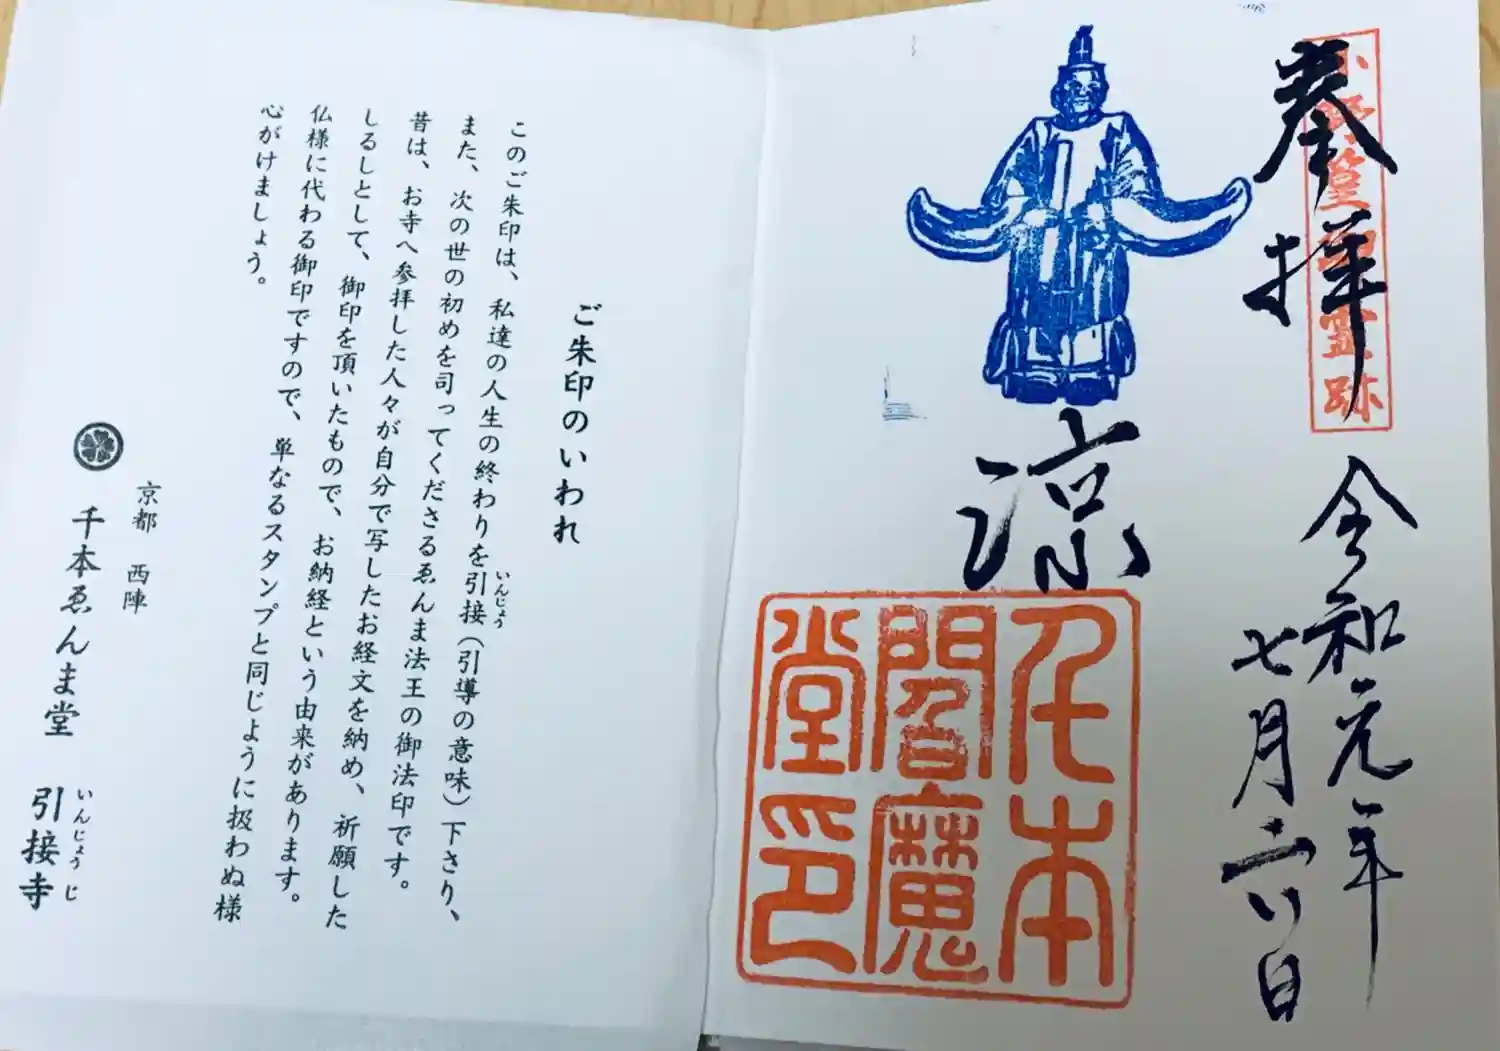 小野篁霊跡
奉拝
令和元年
七月六日
涼
千本
閻魔
堂印
ご朱印のいわれ
このご朱印は、私達の人生の終わりを引接(引導の意味)下さり、
いんじょう
また、次の世の初めを司ってくださるゑんま法王の御法印です。
昔は、お寺へ参拝した人々が自分で写したお経文を納め、祈願した
しるしとして、御印を頂いたもので、お納経という由来があります。
仏様に代わる御印ですので、単なるスタンプと同じように扱わぬ様
心がけましょう。
京都 西陣
千本ゑんま堂 引接寺
いんじょうじ